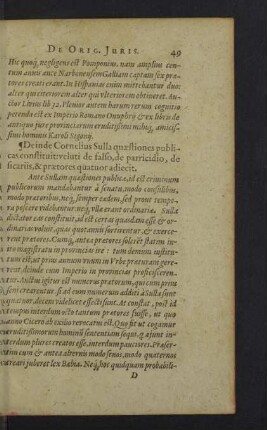 DE ORIG. JURIS. 49
Hic quoq́, negligens est Pomponius. nam amplius cen-
tum annis ante Narbonensem Galliam captam sex præ-
tores creati erant. In Hispanias enim mittebantur duo:
alter qui citeriorem alter qui ulteriorem obtineret. Au-
ctor Livius lib. 32. Plenior autem harum rerum cognitio
petenda est ex Imperio Romano Onuphrij & ex libris de
antiquo jure provinciarum eruditissimi mihiq́, amicis-
simi hominis Karoli Sigonij.
¶ Deinde Cornelius Sulla quæstiones publi-
cas constituit veluti de falso, de parricidio, de
sicariis, & prætores quatuor adiecit.
Ante Sullam quæstiones publicæ, id est criminum
publicorum mandabantur à senatu, modo consulibus,
modo prætoribus. neq́, semper eædem, sed prout tempo-
ra poscere videbantur: neq́, ulla erant ordinaria. Sulla
dictator cas constituit, id est certas quasdam esse & or-
dinarias voluit, quas quotannis sortirentur, & exerce-
rent prætores. Cumq́, antea prætores solerēt statim in-
ito magistratu in provincias ire: tum demum institu-
tum est, ut prius annum unum in Urbe præturam gere-
rent, deinde cum Imperio in provincias proficisceren-
tur. Auctus igitur est numerus prætorum, qui cum prius
sex creàrentur. si ad eum numerum additi à Sulla sunt
quatuor, decem videlicet effecti sunt. At constat, post id
tempus interdum octo tantum prætores fuisse, ut quo
anno Cicero ab exilio revocatus est. Quo fit ut cogamur
eruditissimorum hominū sententiam sequi, q́ ajunt in-
terdum plures creatos esse, interdum pauciores. Præser-
tim cum & antea alternis modo senos, modo quaternos
creari juberet lex Bæbia. Neq́, hoc quidquam probabili-
D